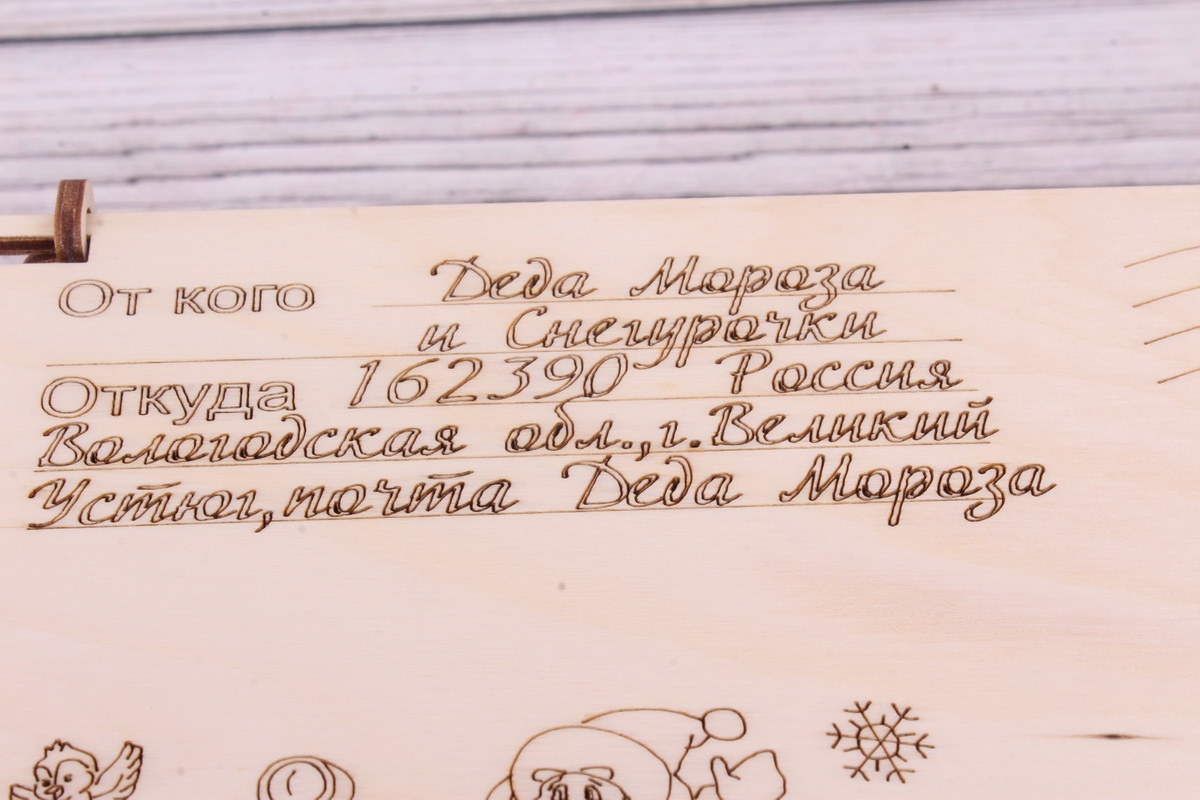 От кого Деда Мороза
и Снегурочки
Откуда 162390 Россия
Вологодская обл.,г.Великий
Устюг,почта Деда Мороза